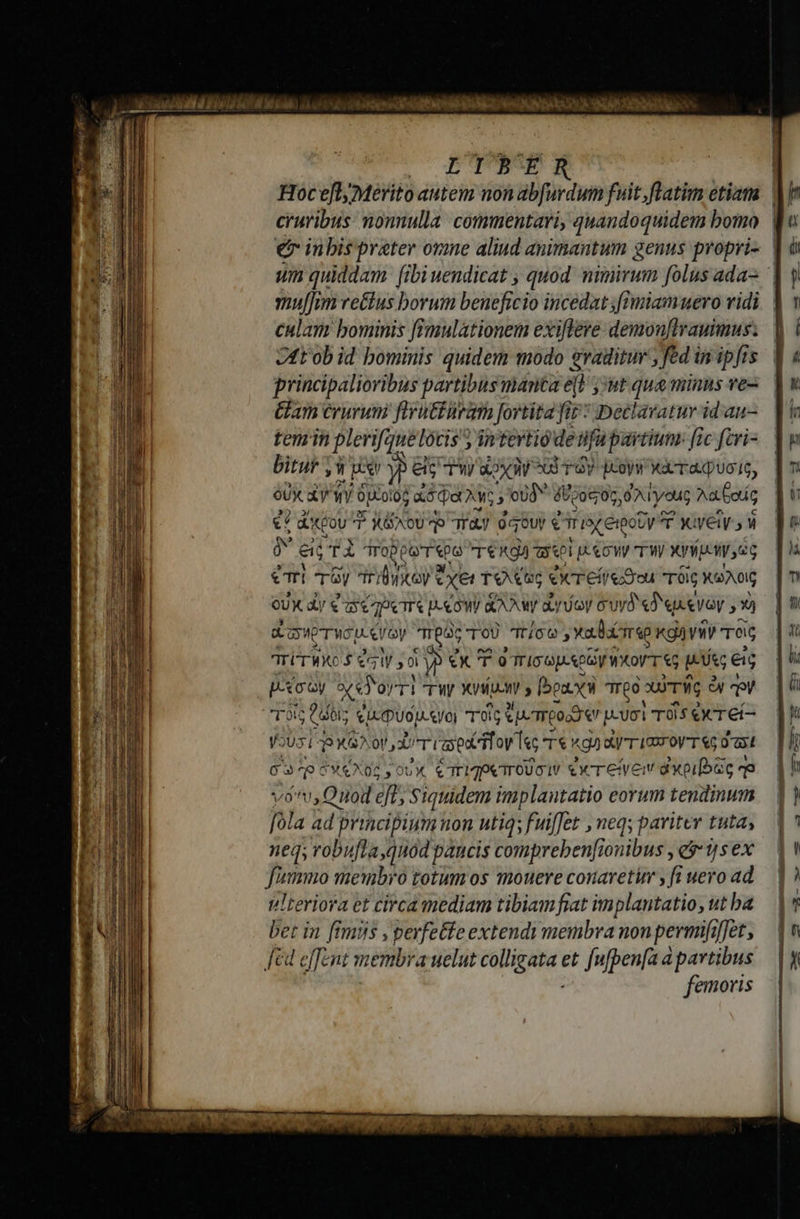 LIBER
Hoc eſt, Merito autem non abſurdum fuit, ſtatim etiam
cruribus nonnulla commentari, quandoquidem homo
& in his præter omne aliud animantum genus propri-
um quiddam ſibi uendicat, quod nimirum ſolus ada-
muſſim rectus horum beneficio incedat, ſimiam uero ridi
culam hominis ſimulationem exiſtere demonſtrauimus.
At ob id hominis quidem modo graditur, ſed in ipſis
principalioribus partibus manca eſt, ut quæ minus re-
ctam crurum ſtructuram ſortita ſit: Declaratur id au-
tem in pleriſque locis, in tertio de uſu partium ſic ſcri-
bitur, ἡ μὲν γὸ εἰς τὴν ἀρχὴν τῶν μόνη κατάφυσις,
οὐκ ἂν ἦν ὁμοίως ἀσφαλὴς, οὐδ' εὔρωστος, ὀλίγους λαβοῦς
ἐξ ἄκρου τ κῶλου τὸ πᾶν ὀστοῦν ἐπιχειροῦν τ κινεῖν, ἡ
δ' εἰς τὰ πορρωτέρω τε καὶ περὶ μέσην τὴν κνήμην, ὡς
ἐπὶ τῶν πιθήκων ἔχει τελέως ἐκτείνεσθαι τοῖς κώλοις
οὐκ ἂν ἐπέτρεπε
πρὸς τοῦ πίσω, καθάπερ καὶ νῦν τοῖς
πιθήκοις ἐστὶν, οἱ γὸ ἐκ τ ὀπισωμερῶν ἥκοντες μύες εἰς
μέσην σχεδόντι τὴν κνήμην, βραχὺ πρὸ αὐτῆς ἐν τὸν
τοῖς ζώοις ἐμφυόμενοι τοῖς ἔμπροσθεν μυσὶ τοῖς ἐκτεί-
νουσι τὸ κῶλον, ἀντιπράττοντες τε καὶ ἀντισπῶντες ὀπί
σω τὸ σκέλος, οὐκ ἐπιτρέπουσιν ἐκτείνειν ἀκριβῶς τὸ
Quod eſt, Siquidem implantatio eorum tendinum
ſola ad principium non utiq; fuiſſet, neq; pariter tuta,
neq; robuſta, quod paucis comprehenſionibus, & ijs ex
ſummo membro totum os mouere conaretur, ſi uero ad
ulteriora et circa mediam tibiam fiat implantatio, ut ha
bet in ſimijs, perfecte extendi membra non permiſiſſet,
ſed eſſent membra uelut colligata et ſuſpenſa à partibus
femoris